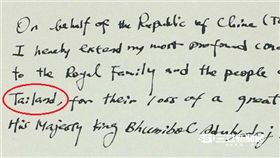 On behalf of the Republic of China (T
I hereby extend my most profound con
to the Royal Family and the people
Tailand, for their loss of a great
His Majesty King Bhumibol